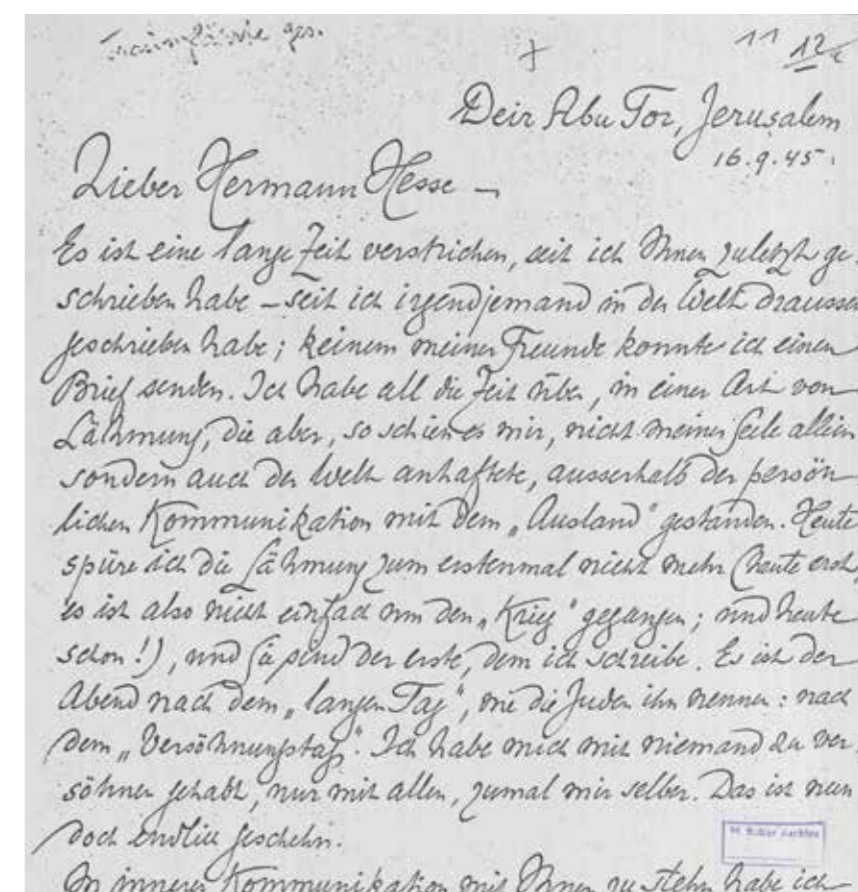 11 12
Deir Abu Tor, Jerusalem
16.9.45.
Lieber Hermann Hesse –
Es ist eine lange Zeit verstrichen, seit ich Ihnen zuletzt ge-
schrieben habe – seit ich irgendjemand in der Welt draussen
geschrieben habe; keinem meiner Freunde konnte ich einen
Brief senden. Ich habe all die Zeit über, in einer Art von
Lähmung, die aber, so schien es mir, nicht meiner Seele allein
sondern auch der Welt anhaftete, ausserhalb der persön-
lichen Kommunikation mit dem „Ausland" gestanden. Heute
spüre ich die Lähmung zum erstenmal nicht mehr (heute erst,
es ist also nicht einfach um den „Krieg" gegangen; und heute
schon!), und Sie sind der erste, dem ich schreibe. Es ist der
Abend nach dem „langen Tag", wie die Juden ihn nennen: nach
dem „Versöhnungstag". Ich habe mich mit niemand zu ver-
söhnen gehabt, nur mit allen, zumal mir selber. Das ist nun
doch endlich geschehn.
In innerer Kommunikation mit Ihnen zu stehn habe ich